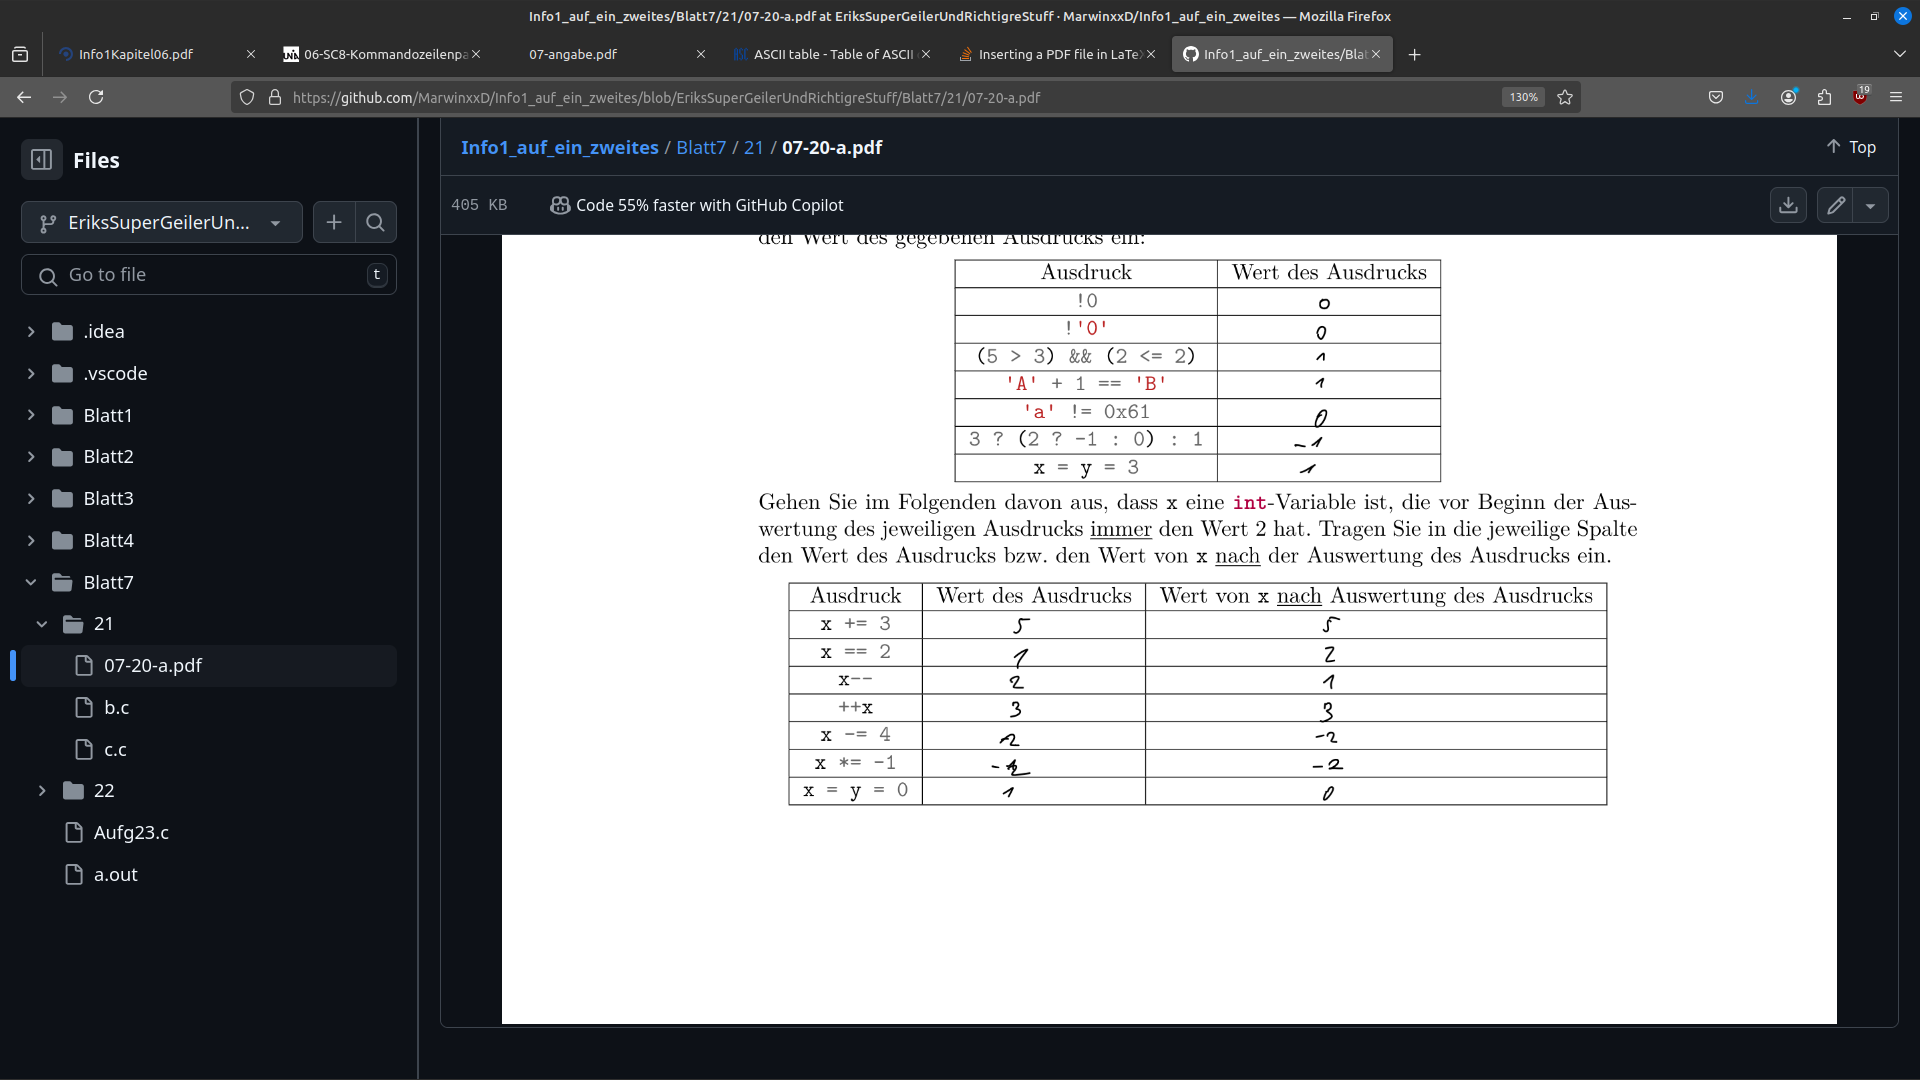 Info1_auf_ein_zweites/Blatt7/21/07-20-a.pdf at EriksSuperGeilerUndRichtigreStuff · MarwinxxD/Info1_auf_ein_zweites — Mozilla Firefox
Info1Kapitel06.pdf
06-SC8-Kommandozeilenpa
07-angabe.pdf
ASCII table - Table of ASCII
Inserting a PDF file in LaTe
Info1_auf_ein_zweites/Blat
https://github.com/MarwinxxD/Info1_auf_ein_zweites/blob/EriksSuperGeilerUndRichtigreStuff/Blatt7/21/07-20-a.pdf
130%
19
Files
EriksSuperGeilerUn...
Go to file
t
.idea
.vscode
Blatt1
Blatt2
Blatt3
Blatt4
Blatt7
21
07-20-a.pdf
b.c
c.c
22
Aufg23.c
a.out
Info1_auf_ein_zweites / Blatt7 / 21 / 07-20-a.pdf
Top
405 KB
Code 55% faster with GitHub Copilot
den Wert des gegebenen Ausdrucks ein:
Ausdruck Wert des Ausdrucks
!0 0
!'0' 0
(5 > 3) && (2 <= 2) 1
'A' + 1 == 'B' 1
'a' != 0x61 0
3 ? (2 ? -1 : 0) : 1 -1
x = y = 3 1
Gehen Sie im Folgenden davon aus, dass x eine int-Variable ist, die vor Beginn der Aus-
wertung des jeweiligen Ausdrucks immer den Wert 2 hat. Tragen Sie in die jeweilige Spalte
den Wert des Ausdrucks bzw. den Wert von x nach der Auswertung des Ausdrucks ein.
Ausdruck Wert des Ausdrucks Wert von x nach Auswertung des Ausdrucks
x += 3 5 5
x == 2 1 2
x-- 2 1
++x 3 3
x -= 4 -2 -2
x *= -1 -2 -2
x = y = 0 1 0